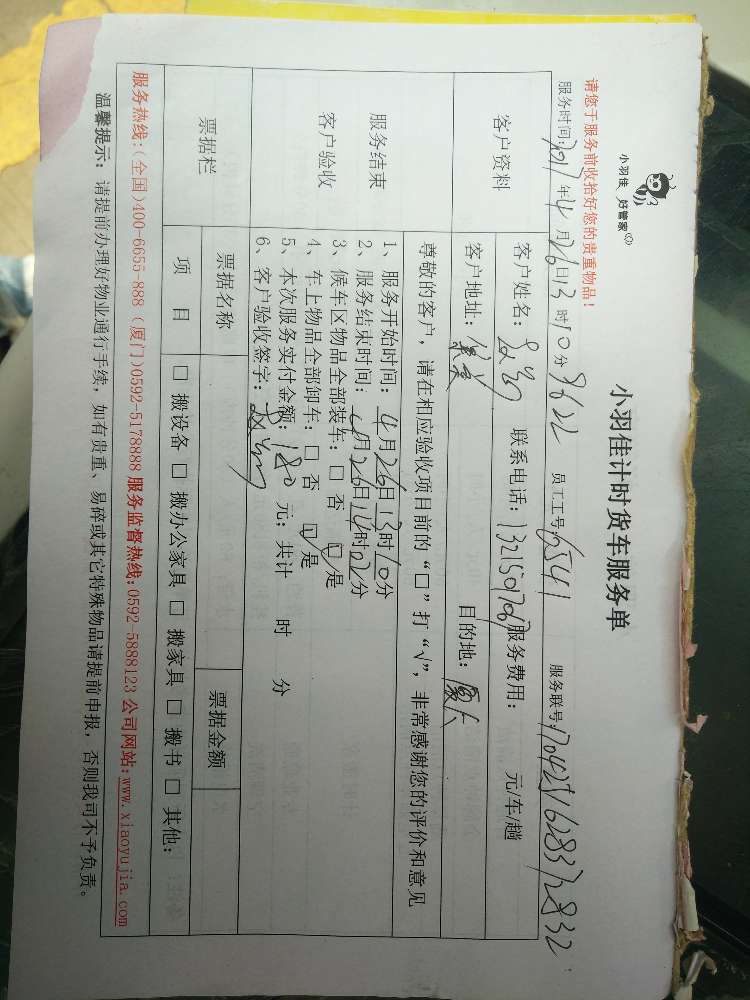 小羽佳 好管家
小羽佳计时货车服务单
请您于服务前收拾好您的贵重物品！
服务时间：2017年4月26日13时10分 8622 员工工号：6541 服务联号：
客户资料
客户姓名： 联系电话：13215017067 服务费用： 元/车/趟
客户地址： 目的地：厦大
服务结束
客户验收
尊敬的客户，请在相应验收项目前的“□”打“√”，非常感谢您的评价和意见
1、服务开始时间：4月26日13时10分
2、服务结束时间：4月26日14时02分
3、候车区物品全部装车：□ 否 □ 是
4、车上物品全部卸车：□ 否 □ 是
5、本次服务实付金额：180 元；共计 时 分
6、客户验收签字：
票据栏
票据名称 票据金额
项 目 □ 搬设备 □ 搬办公家具 □ 搬家具 □ 搬书 □ 其他：
服务热线：(全国)400-6655-888 (厦门)0592-5178888 服务监督热线：0592-5888123 公司网站：www.xiaoyujia.com
温馨提示： 请提前办理好物业通行手续，如有贵重、易碎或其它特殊物品请提前申报，否则我司不予负责。